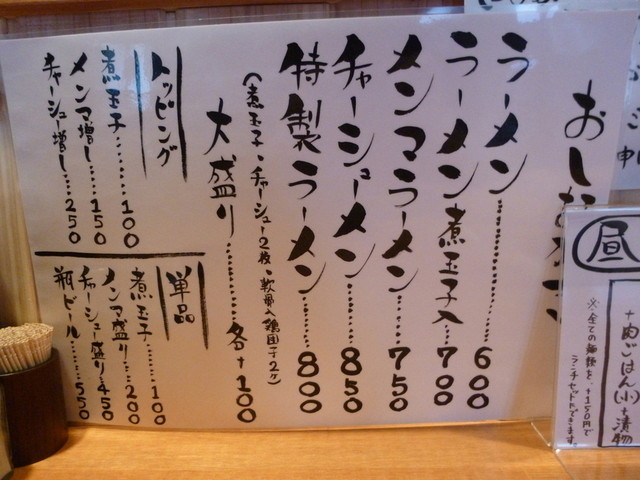 おしな
ラーメン………600
ラーメン煮玉子入……700
メンマラーメン……750
チャーシューメン……850
特製ラーメン……800
(煮玉子・チャーシュー2枚・軟骨入鶏団子2ヶ)
大盛り………各+100
トッピング
煮玉子……100
メンマ増し……150
チャーシュー増し……250
単品
煮玉子……100
メンマ盛り……200
チャーシュー盛り……450
瓶ビール……550
昼
+肉ごはん(小)+漬物
※全ての麺類を、+150円で
ランチセットにできます。